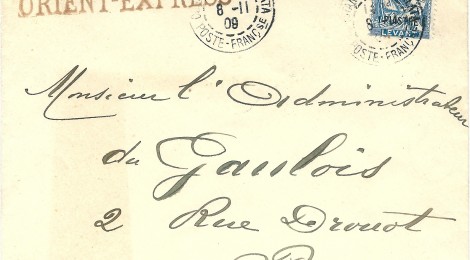 ORIENT-EXPRES
8 -11
09
POSTE-FRANÇSE
1 PIASTRE
LEVANT
POSTE-FRANÇ
Monsieur l'Administrateur
du Gaulois
2 Rue Drouot